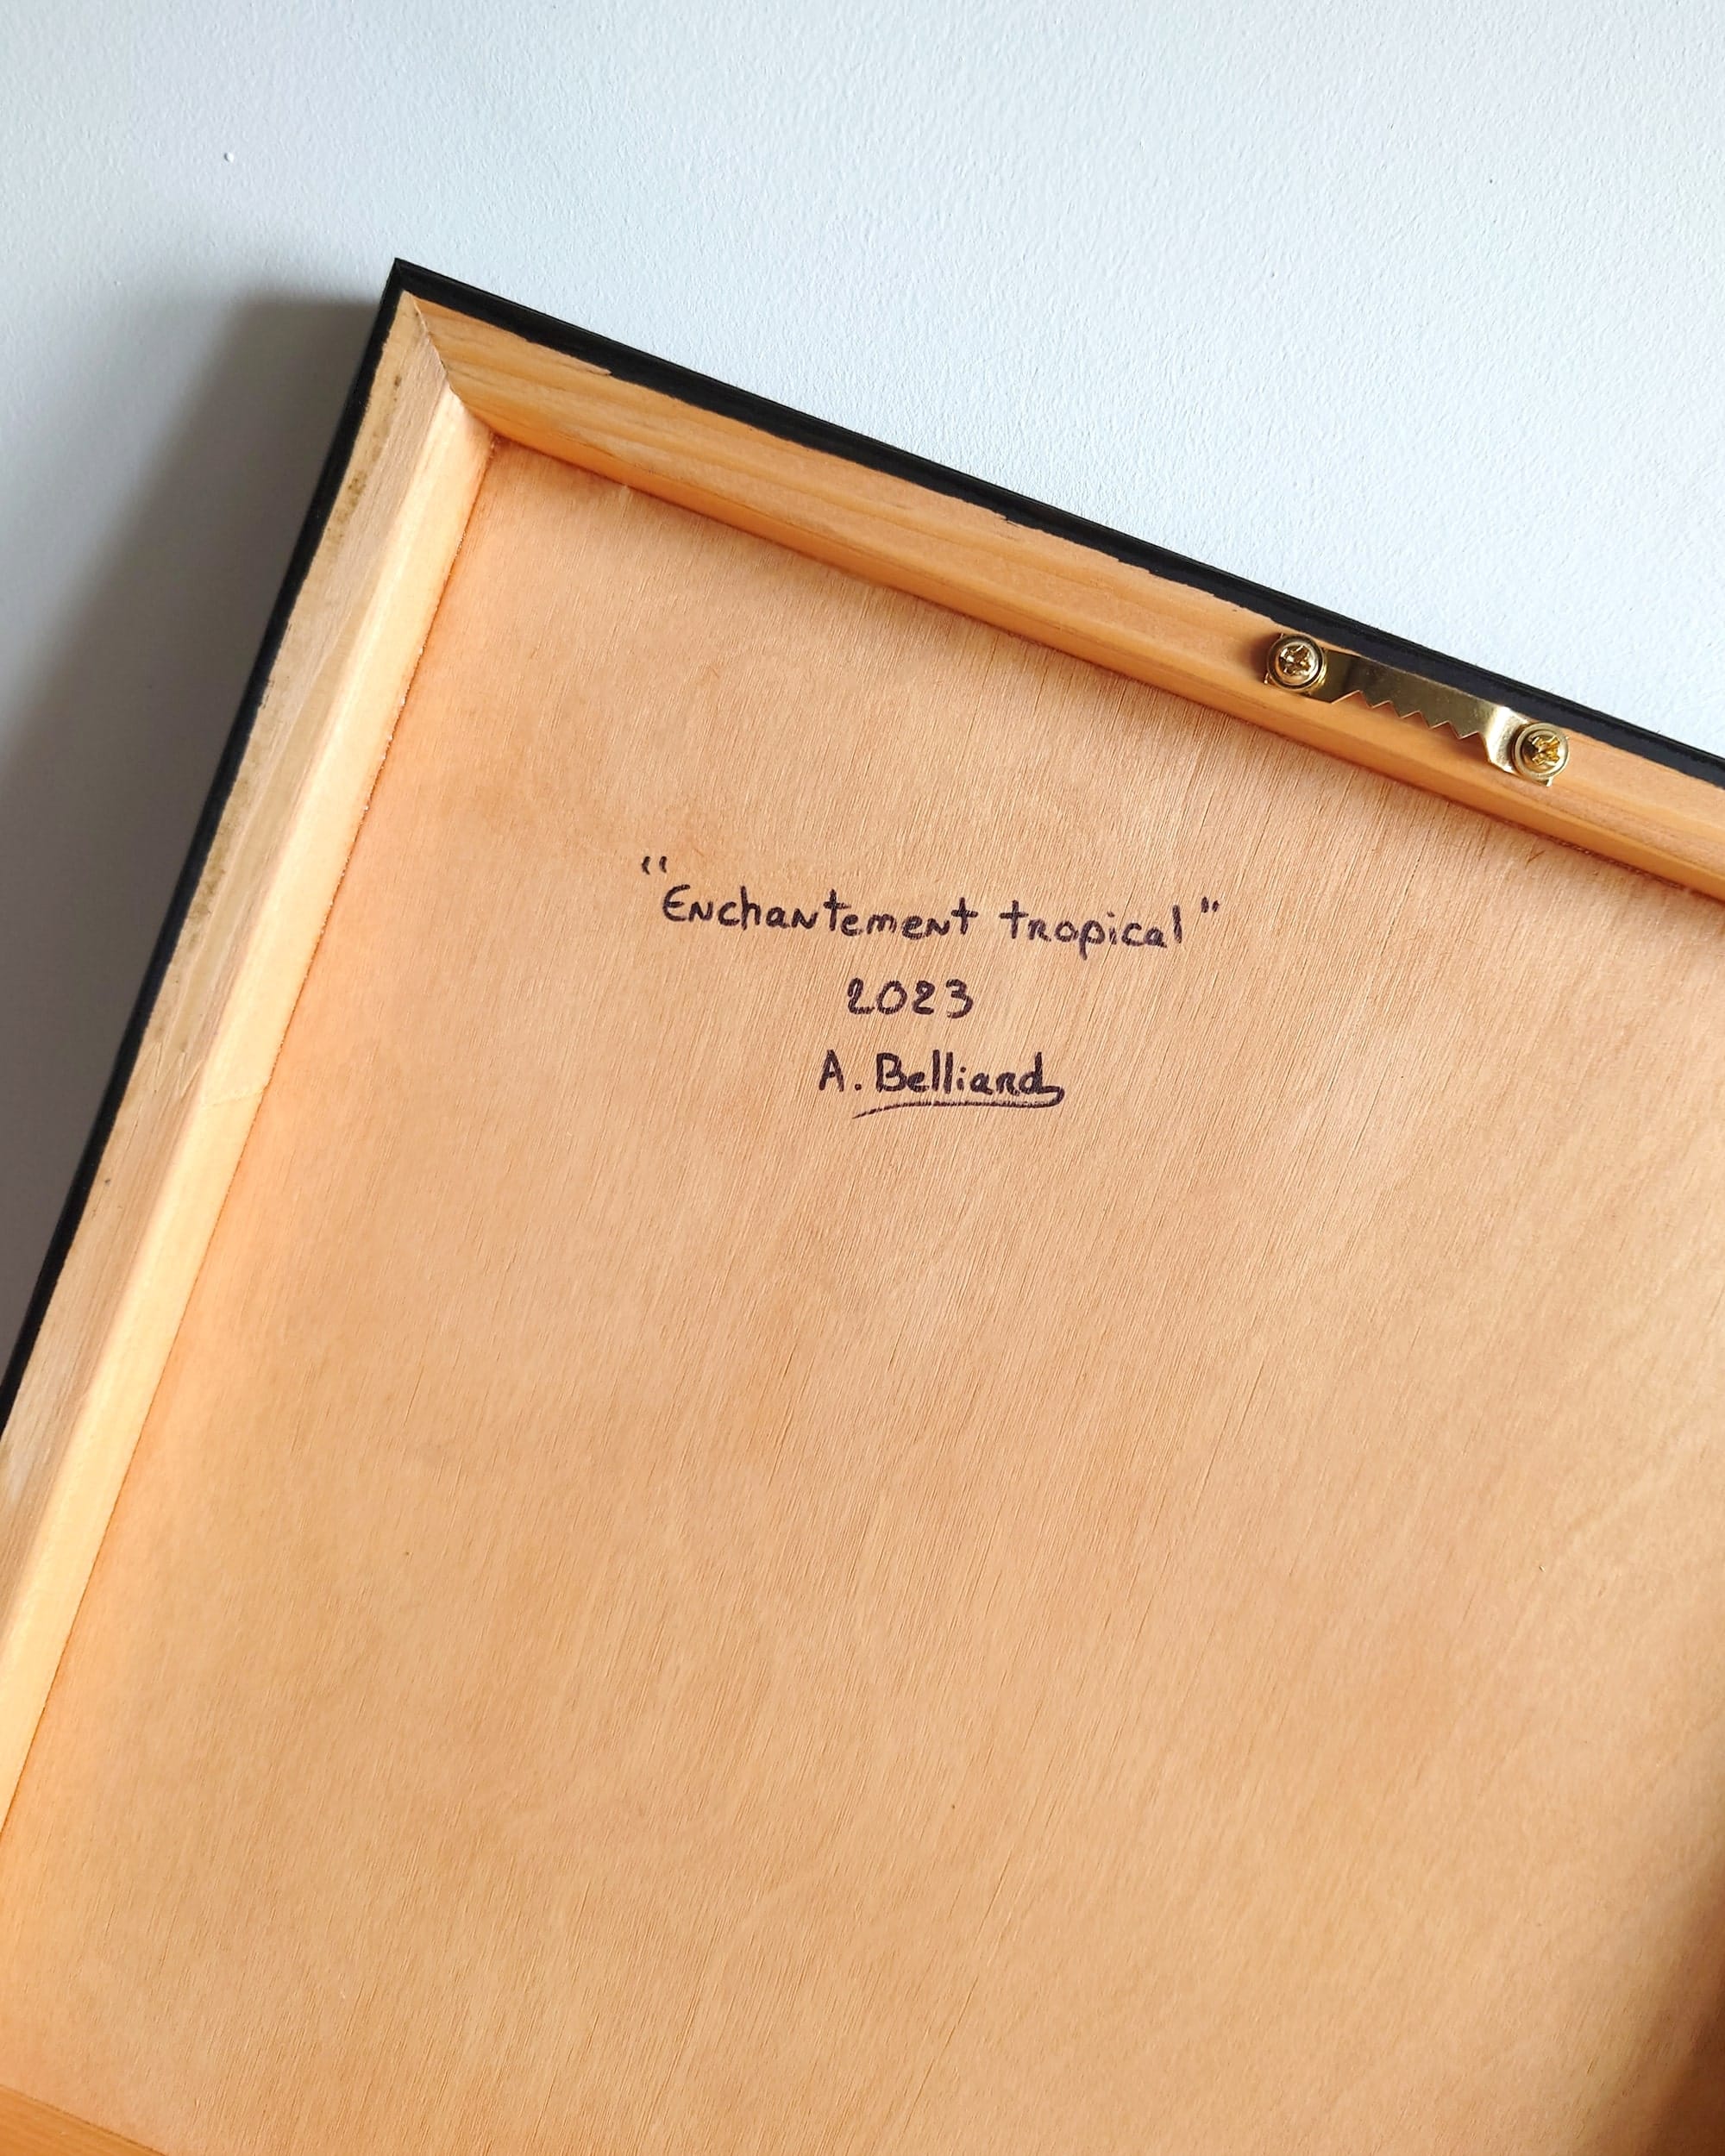 "Enchantement tropical"
2023
A. Belliard